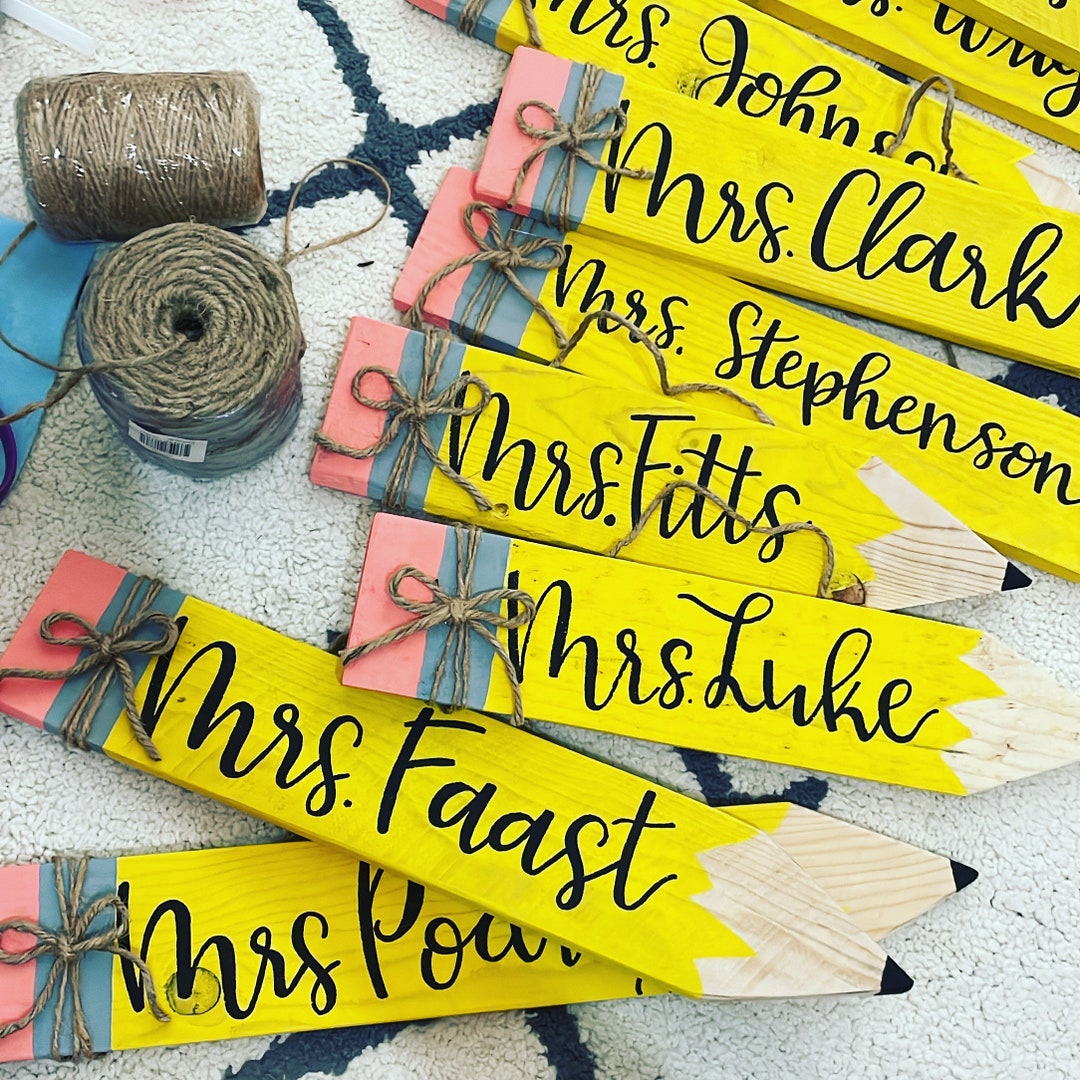 Mrs.
Mrs. Johnso
Mrs. Clark
Mrs. Stephenson
Mrs. Fitts
Mrs. Luke
Mrs. Faast
Mrs